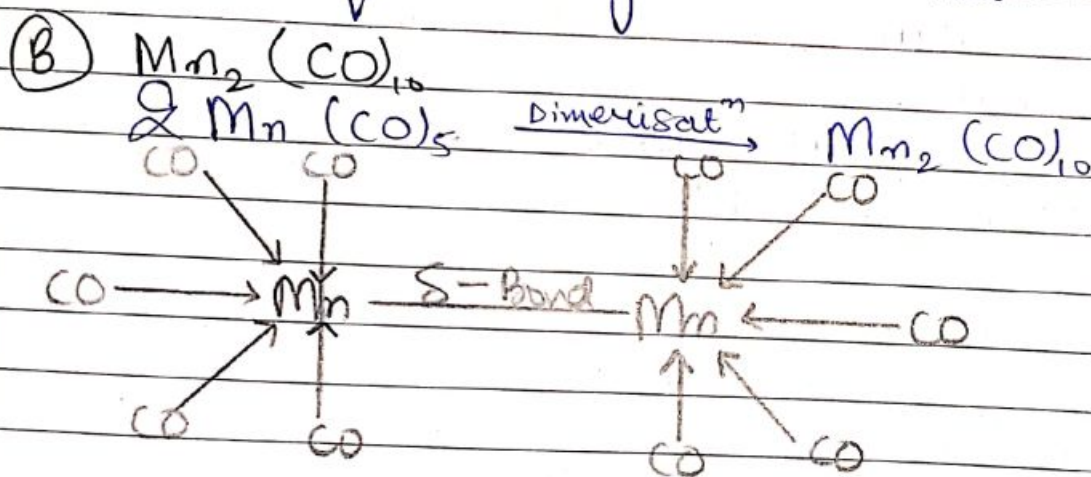 B Mn₂ (CO)₁₀
2 Mn (CO)₅ Dimerisatⁿ Mn₂ (CO)₁₀
CO CO CO CO
CO Mn S-Bond Mn CO
CO CO CO CO